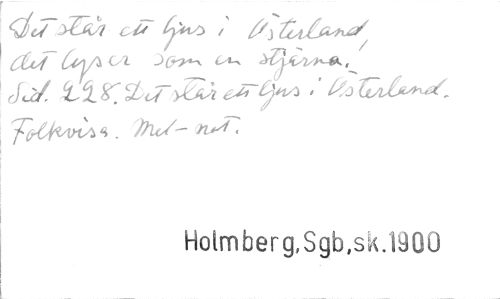 Det står ett ljus i Österland,
det lyser som en stjärna.
Sid. 228. Det står ett ljus i Österland.
Folkvisa. Mel-not.
Holmberg,Sgb,sk.1900